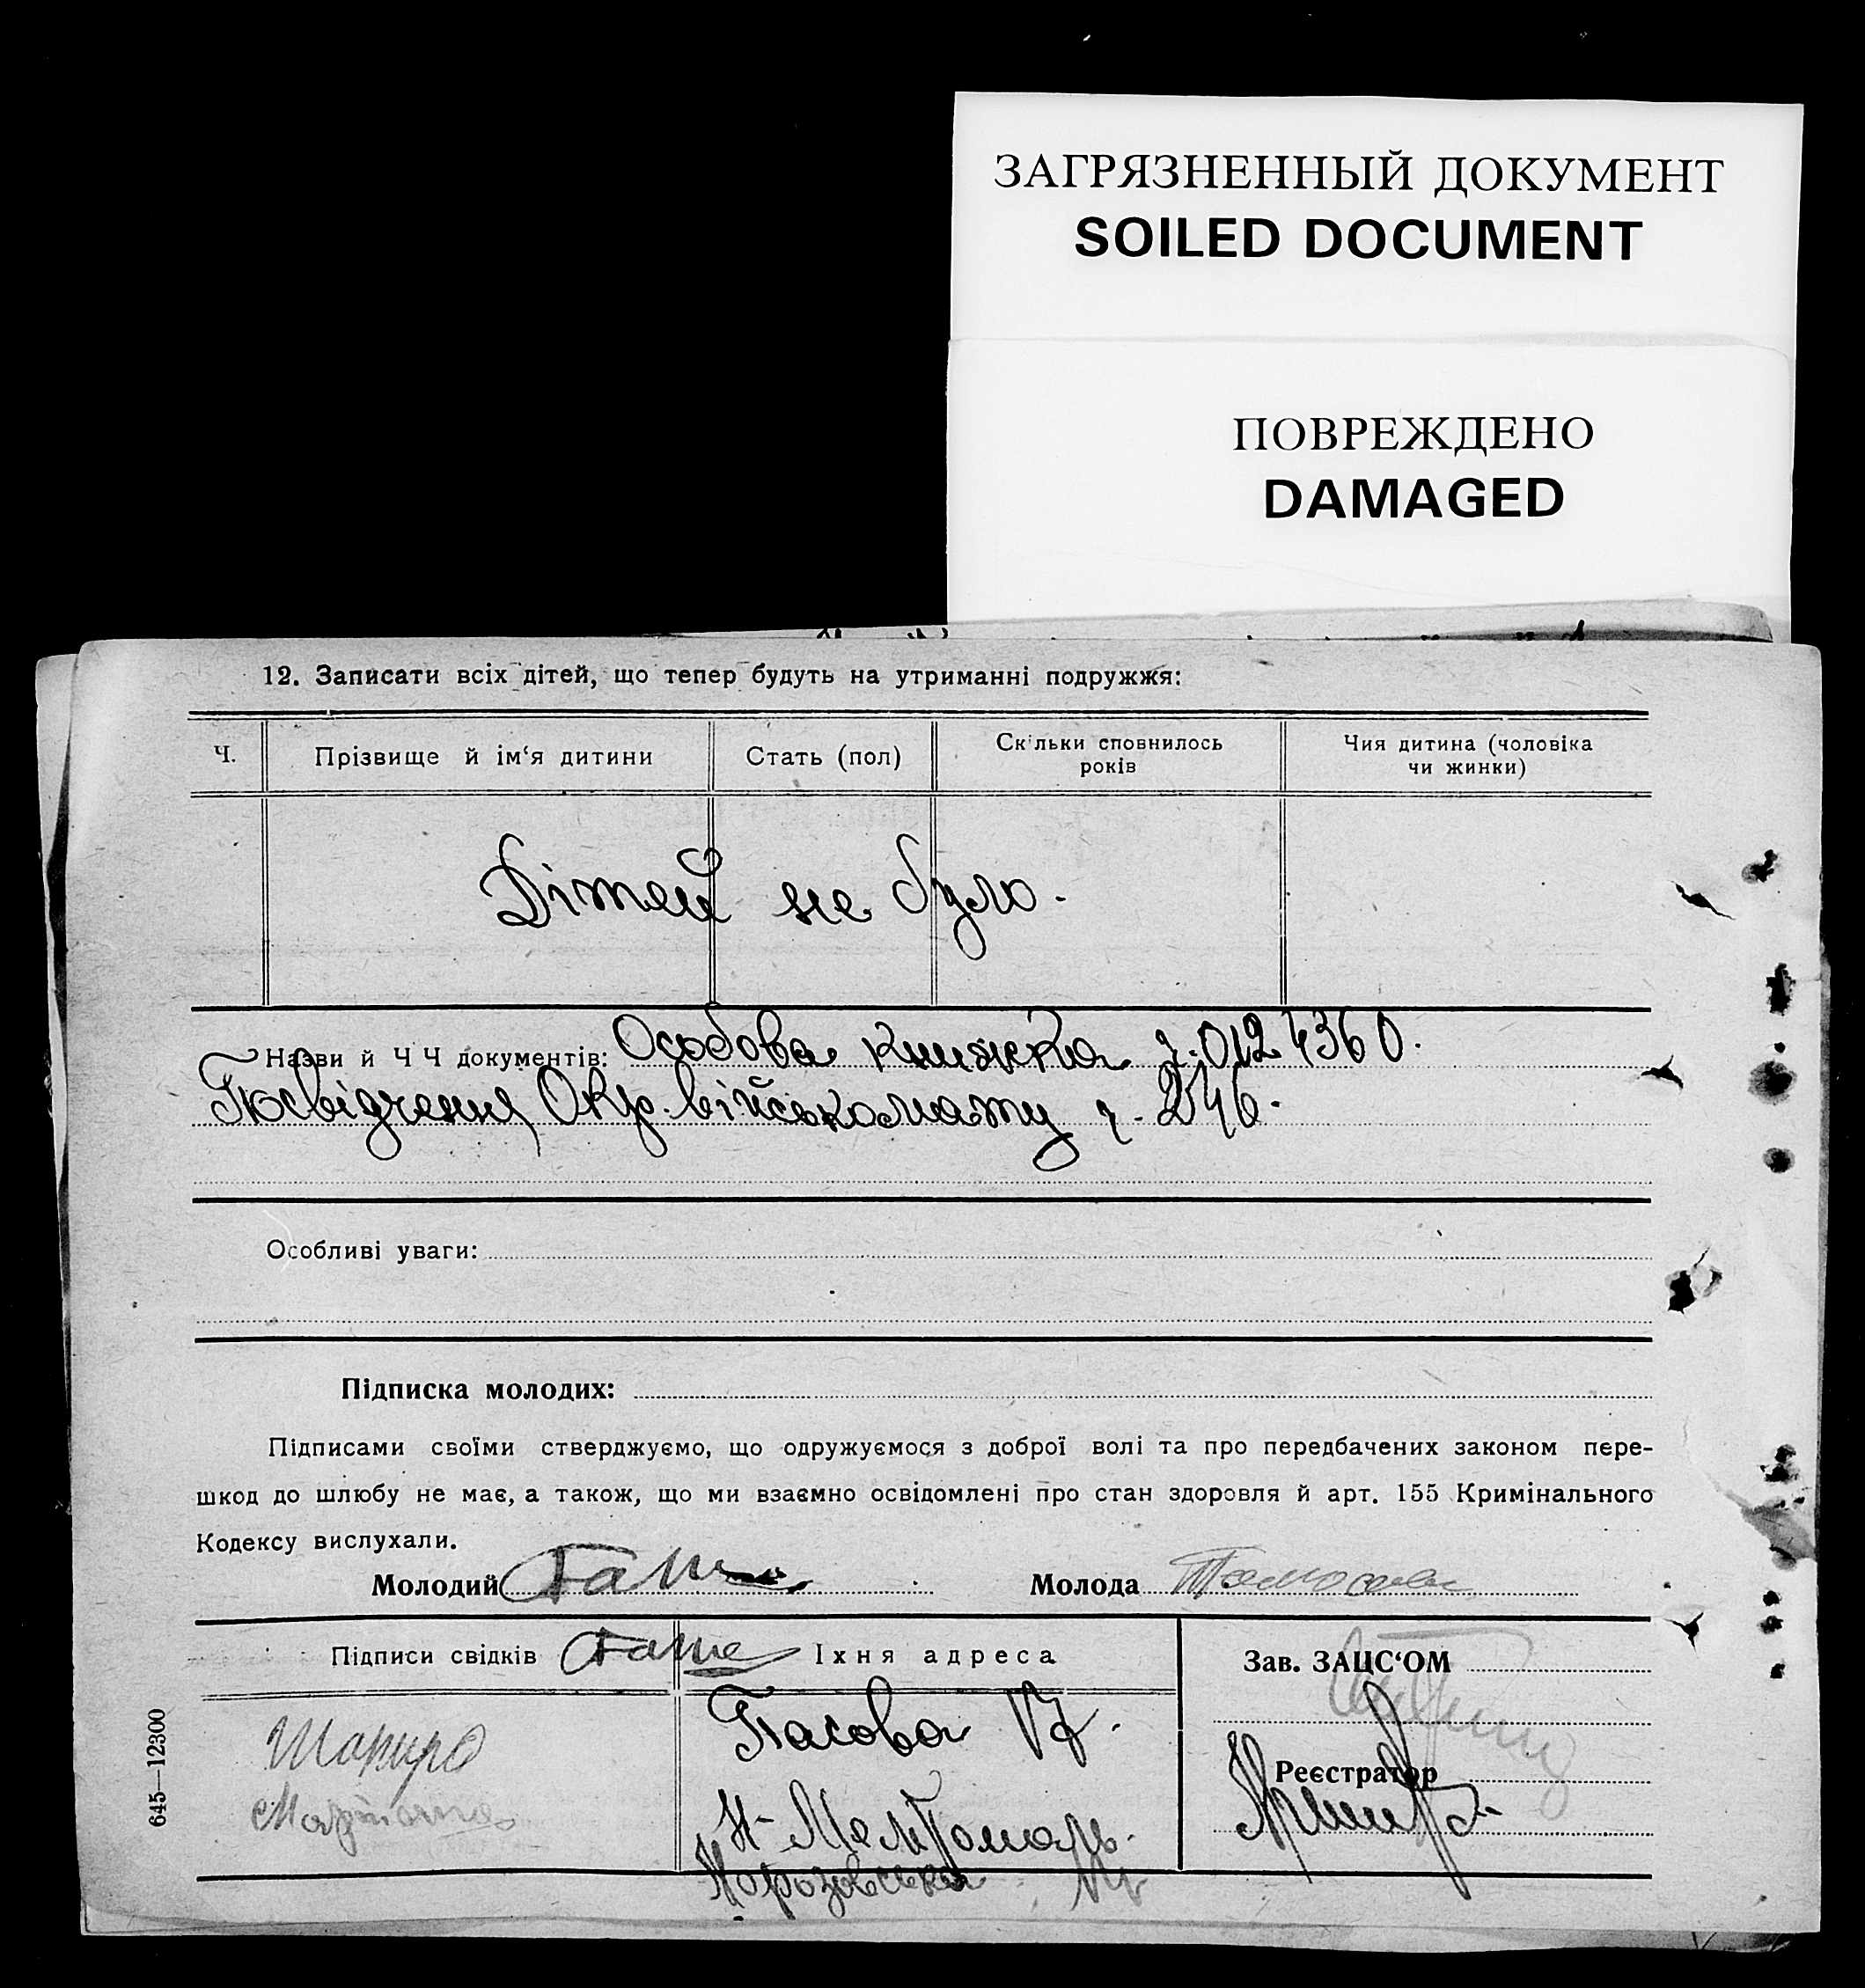 ЗАГРЯЗНЕННЫЙ ДОКУМЕНТ
SOILED DOCUMENT
ПОВРЕЖДЕНО
DAMAGED
12. Записати всіх дітей, що тепер будуть на утриманні подружжя:
Ч. Прізвище й ім‘я дитини Стать (пол) Скільки сповнилось років Чия дитина (чоловіка чи жинки)
Дітей не було.
Назви й Ч Ч документів: Особова книжка ч.
Посвідчення Окр. військомату ч. 246.
Особливі уваги:
Підписка молодих:
Підписами своїми стверджуємо, що одружуємося з доброї волі та про передбачених законом пере-
шкод до шлюбу не має, а також, що ми взаємно освідомлені про стан здоровля й арт. 155 Кримінального
Кодексу вислухали.
Молодий Молода
Підписи свідків Їхня адреса Зав. ЗАЦС‘ОМ
Реєстратор
645—12300